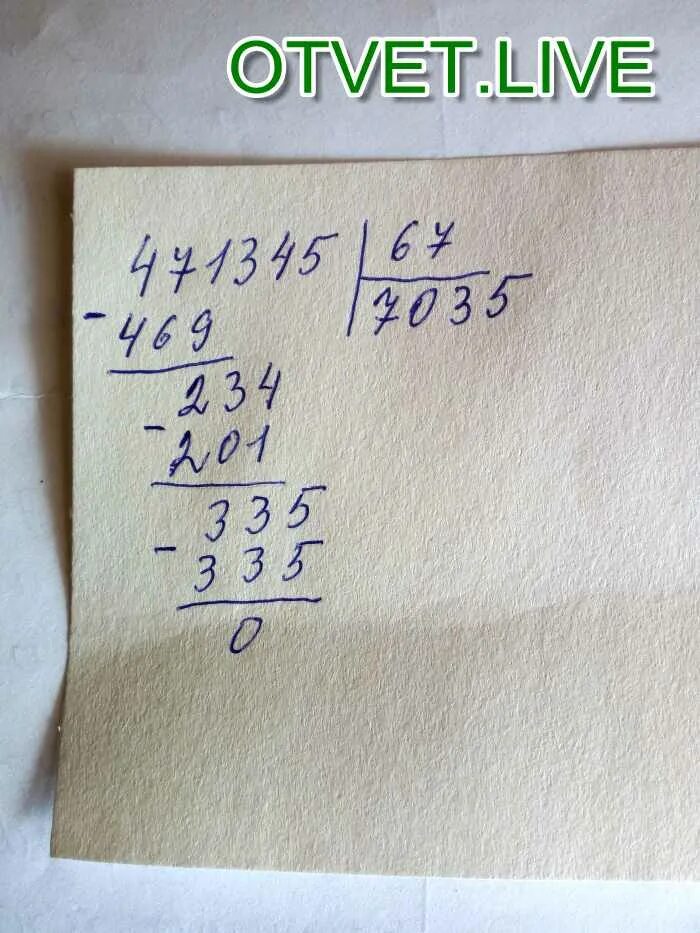 OTVET.LIVE
471345 | 67
- 469 | 7035
- 234
201
- 335
335
0